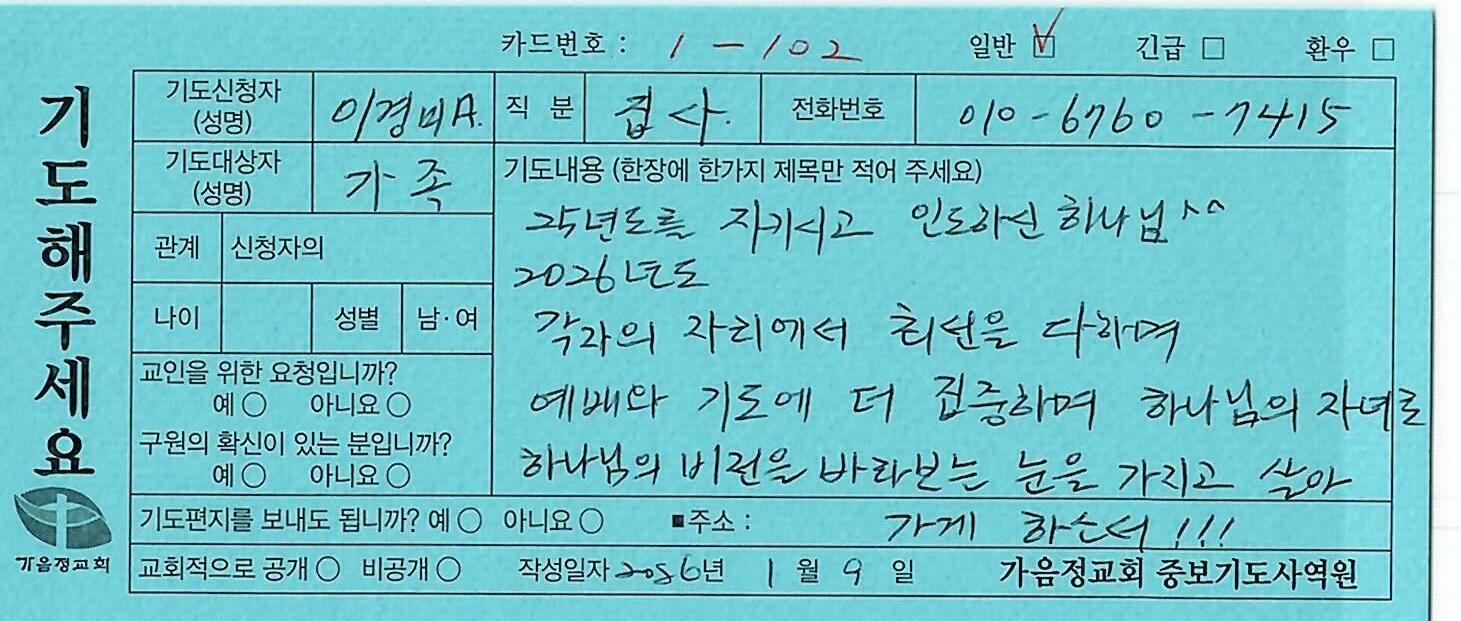 카드번호 : 1 - 102 일반 ☑ 긴급 □ 환우 □
기도해주세요
기도신청자 (성명) 이경미A. 직 분 집사. 전화번호 010-6760-7415
기도대상자 (성명) 가족
기도내용 (한장에 한가지 제목만 적어 주세요)
25년도를 지키시고 인도하신 하나님^^
2026년도
각자의 자리에서 최선을 다하며
예배와 기도에 더 집중하며 하나님의 자녀로
하나님의 비전을 바라보는 눈을 가지고 살아
가게 하소서!!!
관계 신청자의
나이 성별 남·여
교인을 위한 요청입니까?
예 ○ 아니요 ○
구원의 확신이 있는 분입니까?
예 ○ 아니요 ○
기도편지를 보내도 됩니까? 예 ○ 아니요 ○ ■주소 :
교회적으로 공개 ○ 비공개 ○ 작성일자 2026년 1월 9일 가음정교회 중보기도사역원
가음정교회